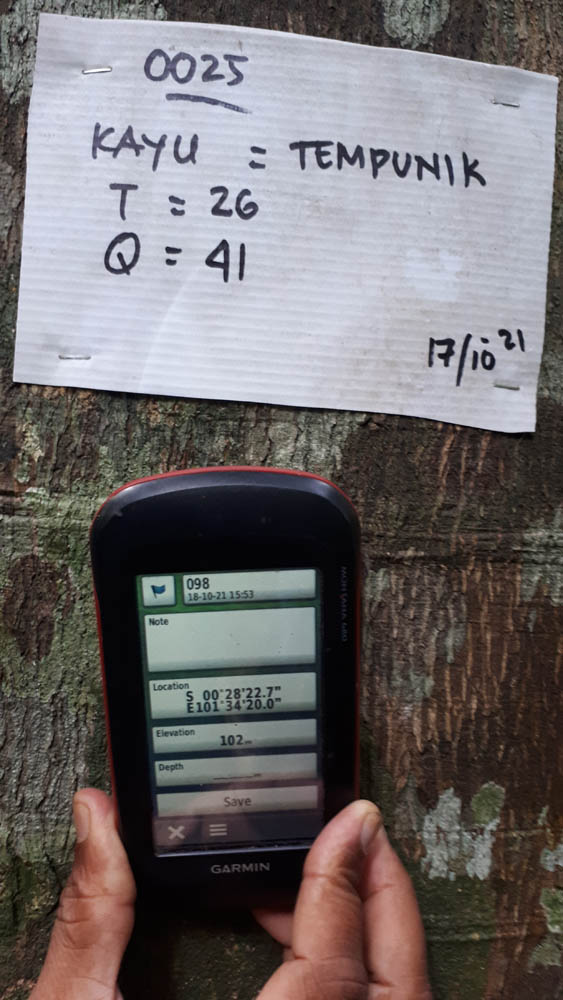 0025
KAYU = TEMPUNIK
T = 26
Q = 41
17/10 21
098
18-10-21 15:53
Note
Location
S 00°28'22.7"
E101°34'20.0"
Elevation
102 m
Depth
Save
GARMIN